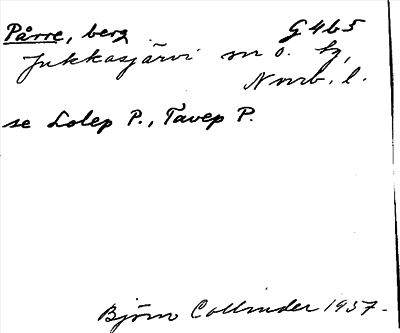 Pårre, berg G4b5
Jukkasjärvi sn o. tg,
Nnrb. l.
se Lolep P., Tavep P.
Björn Collinder 1937.